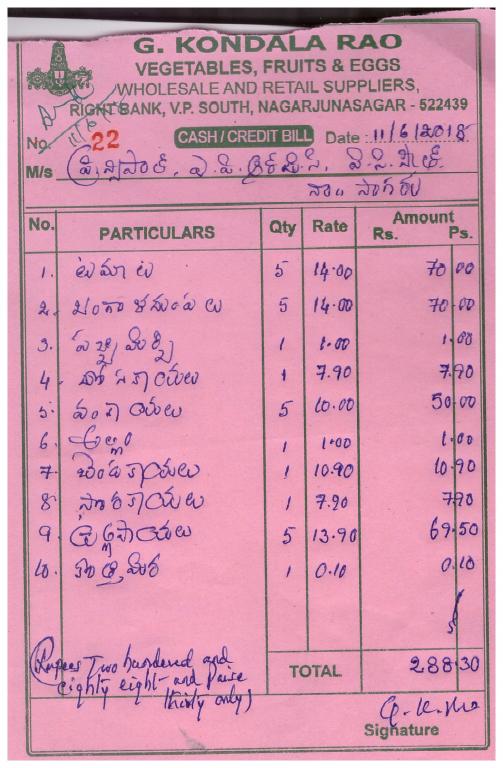 G. KONDALA RAO
VEGETABLES, FRUITS & EGGS
WHOLESALE AND RETAIL SUPPLIERS,
RIGHT BANK, V.P. SOUTH, NAGARJUNASAGAR - 522439
No. 22 CASH / CREDIT BILL Date : 11/6/2018
M/s ప్రిన్సిపాల్, ఏ.పి.ఆర్.
సాగరు
No. PARTICULARS Qty Rate Amount
Rs. Ps.
1. టమాట 5 14.00 70 00
2. బంగాళదుంపలు 5 14.00 70.00
3. పచ్చిమిర్చి 1 1.00 1.00
4. దోసకాయలు 1 7.90 7.90
5. వంకాయలు 5 10.00 50.00
6. అల్లం 1 1.00 1.00
7. బెండకాయలు 1 10.90 10.90
8. సొరకాయలు 1 7.90 7.90
9. 5 13.90 69.50
10. కొత్తిమీర 1 0.10 0.10
(Rupees Two hundered and
eighty eight and Paise
thirty only)
TOTAL 288.30
Signature